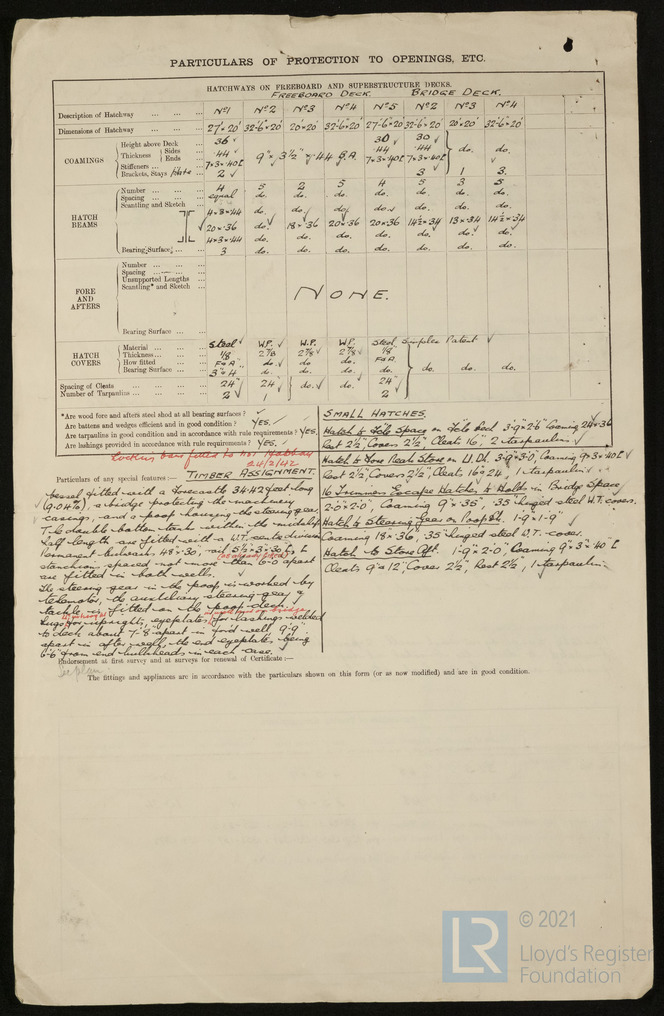 PARTICULARS OF PROTECTION TO OPENINGS, ETC.
HATCHWAYS ON FREEBOARD AND SUPERSTRUCTURE DECKS.
FREEBOARD DECK. BRIDGE DECK.
Description of Hatchway ... No1 No2 No3 No4 No5 No2 No3 No4
Dimensions of Hatchway ... 27'×20' 32'-6"×20' 20'×20' 32'-6"×20' 27'-6"×20' 32'-6"×20' 20'×20' 32'-6"×20'
COAMINGS
Height above Deck ... 36 30 30
Thickness Sides ... ·44 ·44 ·44 do. do.
Ends
Stiffeners ... 7×3×·40 9"×3½"×·44 B.A. 7×3×·40 7×3×·40
Brackets, Stays Plate ... 2 3 1 3.
HATCH BEAMS
Number ... 4 5 2 5 4 5 3 5
Spacing ... equal do. do. do. do. do. do. do.
Scantling and Sketch ...
4×3×·44 do. do. do. do. do. do. do.
20×·36 do. 18×·36 20×·36 20×·36 14½×·34 13×·34 14½×·34
4×3×·44 do. do. do. do. do. do. do.
Bearing Surface ... 3 do. do. do. do. do. do. do.
FORE AND AFTERS
Number ...
Spacing ...
Unsupported Lengths ...
Scantling* and Sketch ...
NONE.
Bearing Surface ...
HATCH COVERS
Material ... Steel W.P. W.P. W.P. Steel Simplex Patent
Thickness ... 1/8 2 7/8 2 7/8 2 7/8 1/8
How fitted ... F&A do. do. do. F&A. do. do. do.
Bearing Surface ... 3"&4 do. do. do.
Spacing of Cleats ... 24" 24 do. do. 24"
Number of Tarpaulins ... 2 1 2
*Are wood fore and afters steel shod at all bearing surfaces?
Are battens and wedges efficient and in good condition? YES.
Are tarpaulins in good condition and in accordance with rule requirements? YES.
Are lashings provided in accordance with rule requirements? YES.
Locking bars fitted to No1 Hatchway
24/2/42
Particulars of any special features:— TIMBER ASSIGNMENT.
Vessel fitted with a forecastle 34·42 feet long
(9·04%), a bridge protecting the machinery
casings, and a poop housing the steering gear.
The double bottom tanks within the midship
half length are fitted with a W.T. centre division
Permanent bulwark 48"×·30,
stanchions spaced not more than 6'-0" apart
are fitted in both wells.
The steering gear in the poop is worked by
telemotor, the auxiliary steering gear &
tackle is fitted on the poop deck.
Lugs for uprights, eyeplates for lashings welded
to deck about 7'-8" apart in for'd well 9'-9"
apart in after well, the end eyeplates being
6'-6" from end bulkheads in each case.
Endorsement at first survey and at surveys for renewal of Certificate:—
See plan
The fittings and appliances are in accordance with the particulars shown on this form (or as now modified) and are in good condition.
SMALL HATCHES.
Hatch to Fo'c'le Space on Fo'c'le Deck 3'-9"×2'-6" Coaming 24"×·36
Rest 2½", Covers 2½", Cleats 16", 2 tarpaulins
Hatch to Fore Peak Store on U. Dk. 3'-9"×3'-0", Coaming 9×3×·40
Rest 2½", Covers 2½", Cleats 16"&24", 1 tarpaulin
16 Trimmers Escape Hatches to Holds in Bridge Space,
2'-0"×2'-0", Coaming 9"×·35", ·35" hinged steel W.T. covers.
Hatch to Steering Gear on Poop Dk. 1'-9"×1'-9"
Coaming 18"×·36, ·35" hinged steel W.T. cover.
Hatch to Store Aft. 1'-9"×2'-0", Coaming 9"×3"×·40"
Cleats 9"&12", Cover 2½", Rest 2½", 1 tarpaulin
LR
© 2021
Lloyd's Register
Foundation